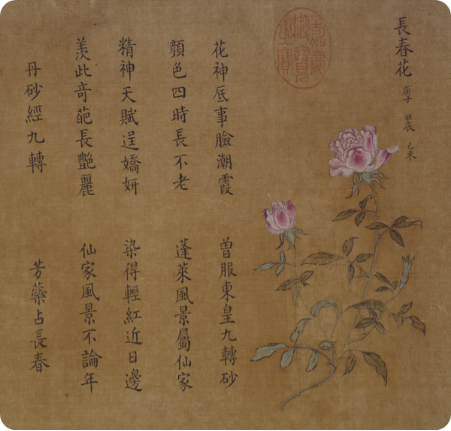 長春花
嘉慶
御覽
之寶
花神底事臉潮霞 曾服東皇九轉砂
顏色四時長不老 蓬萊風景屬仙家
精神天賦逞嬌妍 染得輕紅近日邊
羨此奇葩長艷麗 仙家風景不論年
丹砂經九轉 芳蘂占長春